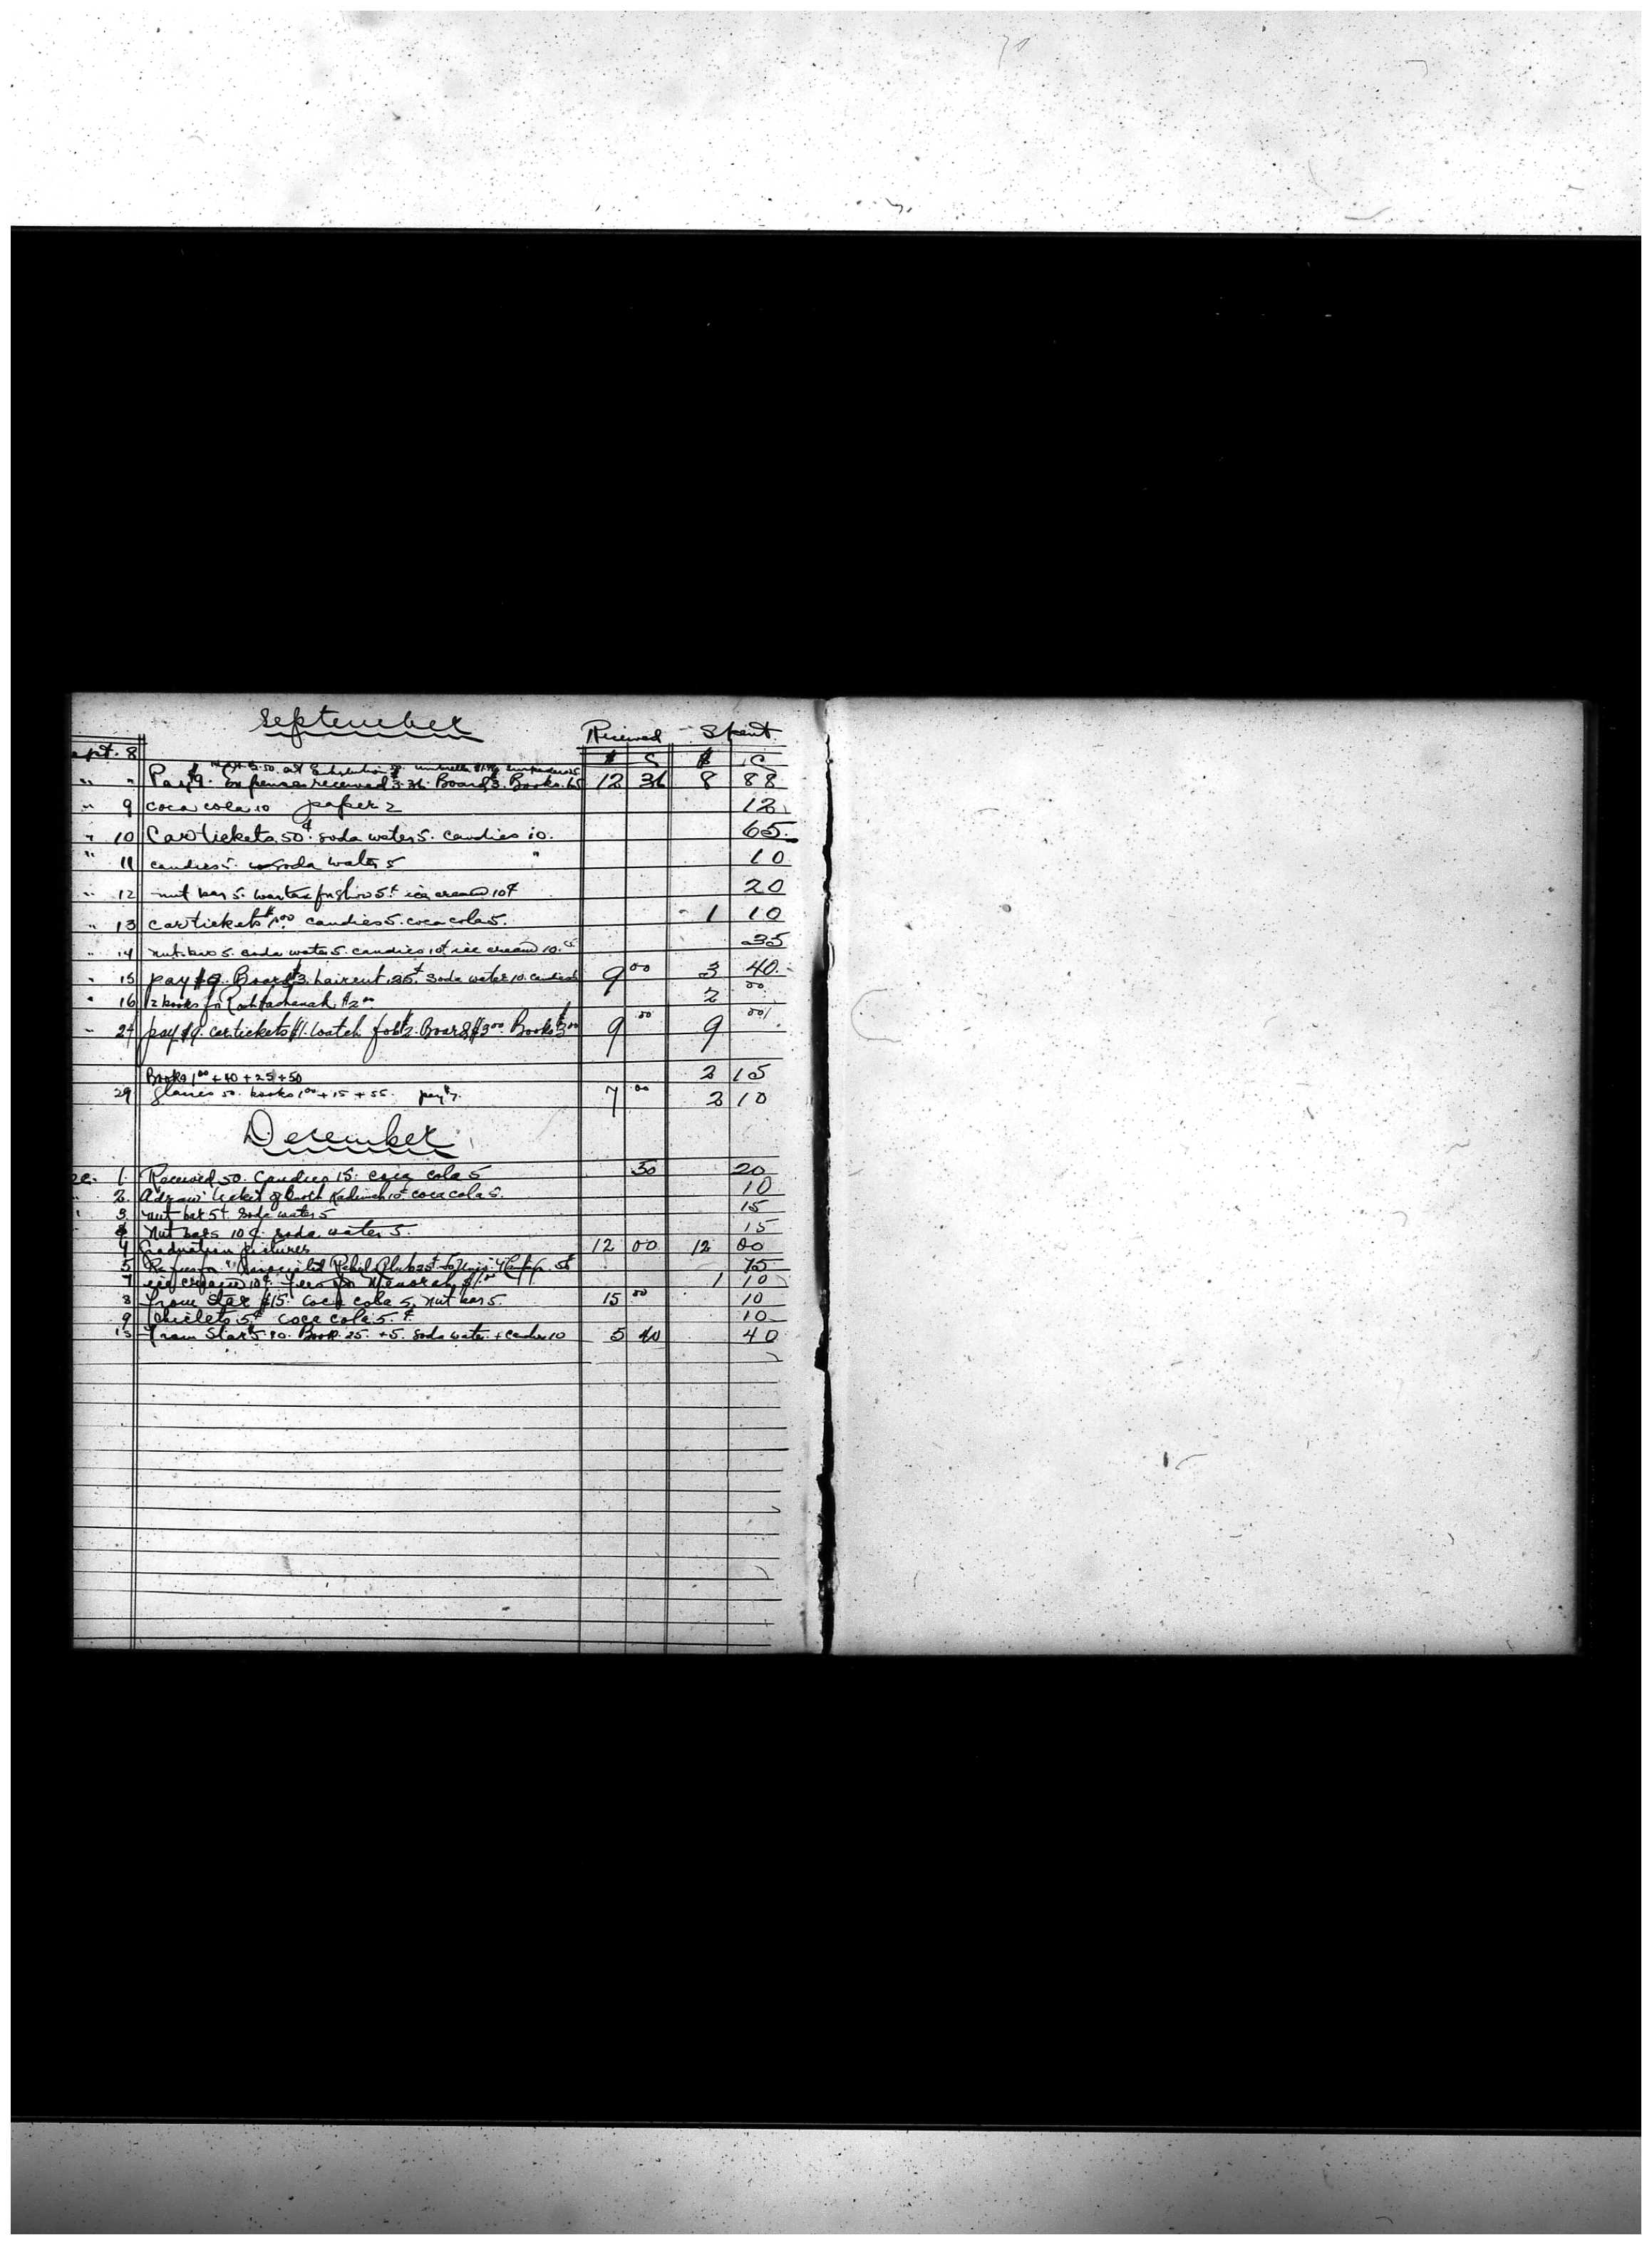 September
Received Spent
Sept. 8 $ C $ C
" " Pay $9. Expenses received 3.36. Board $3. Books .65 12 36 8 88
" 9 coca cola 10 paper 2 12
" 10 Car tickets 50¢ soda water 5. candies 10. 65
" 11 candies 5. soda water 5 " 10
" 12 nut bar 5. 5¢ ice cream 10¢ 20
" 13 car tickets $1.00 candies 5. coca cola 5. 1 10
" 14 nut bars 5. soda water 5. candies 10¢ ice cream 10. 35
" 15 pay $9. Board $3. haircut .25¢ soda water 10. candies 9 00 3 40
" 16 2 books for $2 00 2 00
" 24 pay $9. car tickets $1. watch fob $2. Board $3 00. Books $3 00 9 00 9 00
Books 1 00 + 40 + 25 + 50 2 15
29 glasses 50. books 1 00 + 15 + 55. pay $7. 7 00 2 10
December
Dec. 1. Received 50. Candies 15. coca cola 5 50 20
2. ticket of 10¢ coca cola 5. 10
3 nut bar 5¢. soda water 5 15
Nut bars 10¢. soda water 5. 15
4 Graduation pictures 12 00 12 00
5 75
7 ice cream 10¢. Fees for Menorah $1.00 1 10
8 From Star $15. coca cola 5. nut bar 5. 15 00 10
9 Chiclets 5¢ coca cola 5.¢ 10
15 From Star 5.40. Book .25. +5. soda water + candies 10 5 40 40